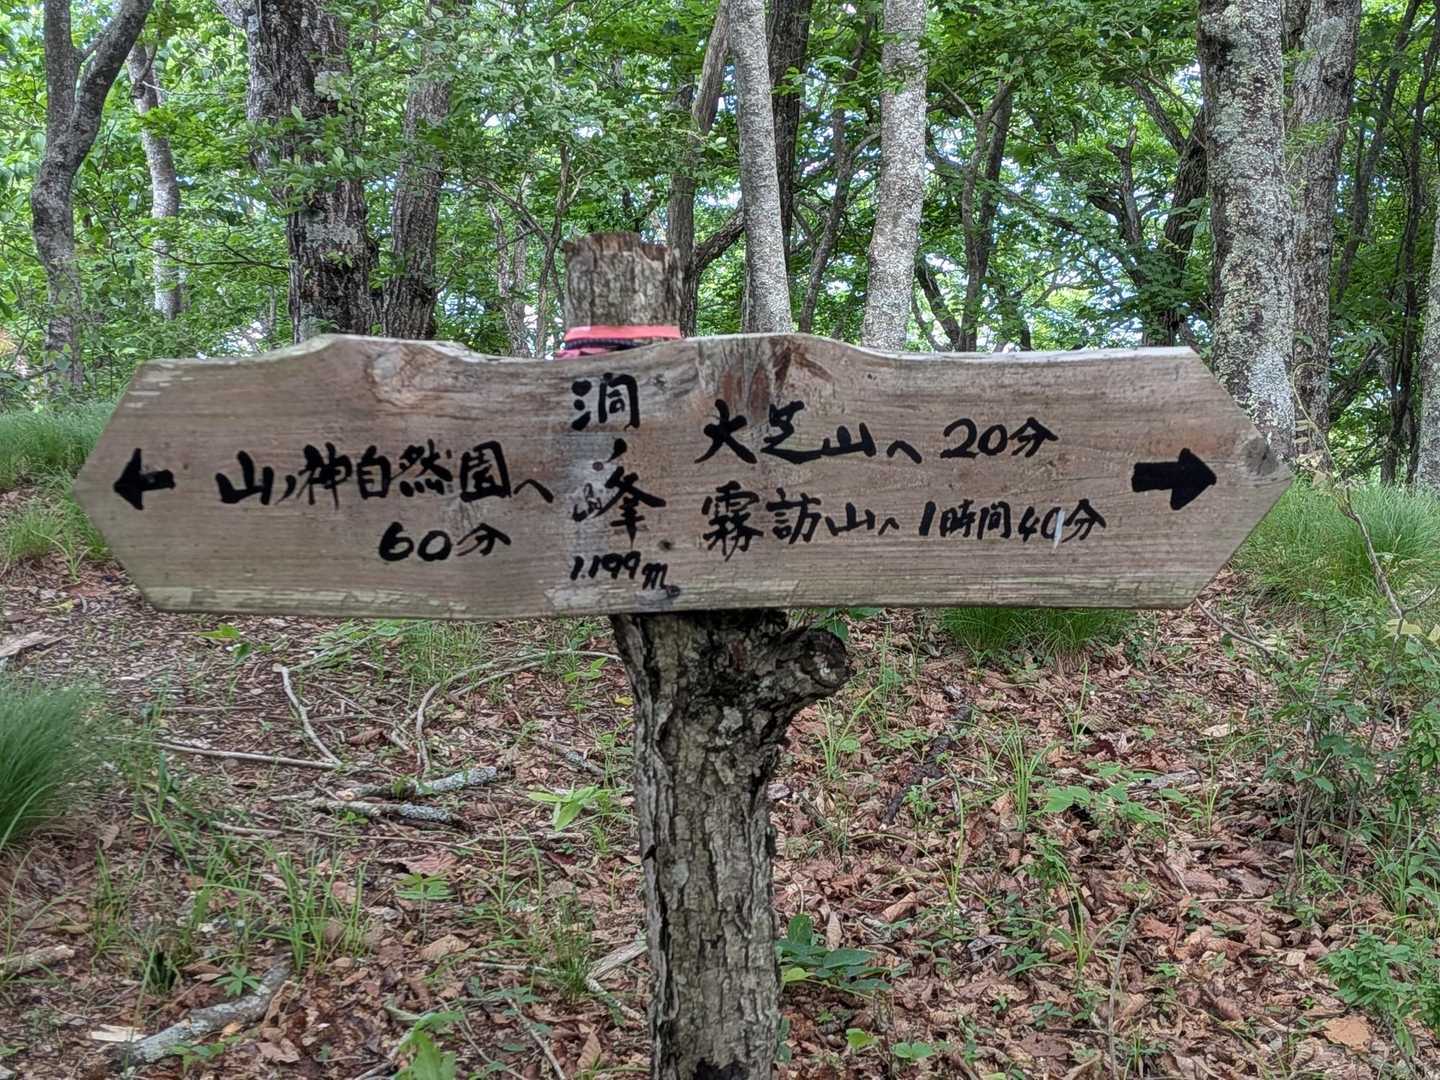 山ノ神自然園へ
60分
洞
ノ
峰
1.199m
大芝山へ 20分
霧訪山へ 1時間40分